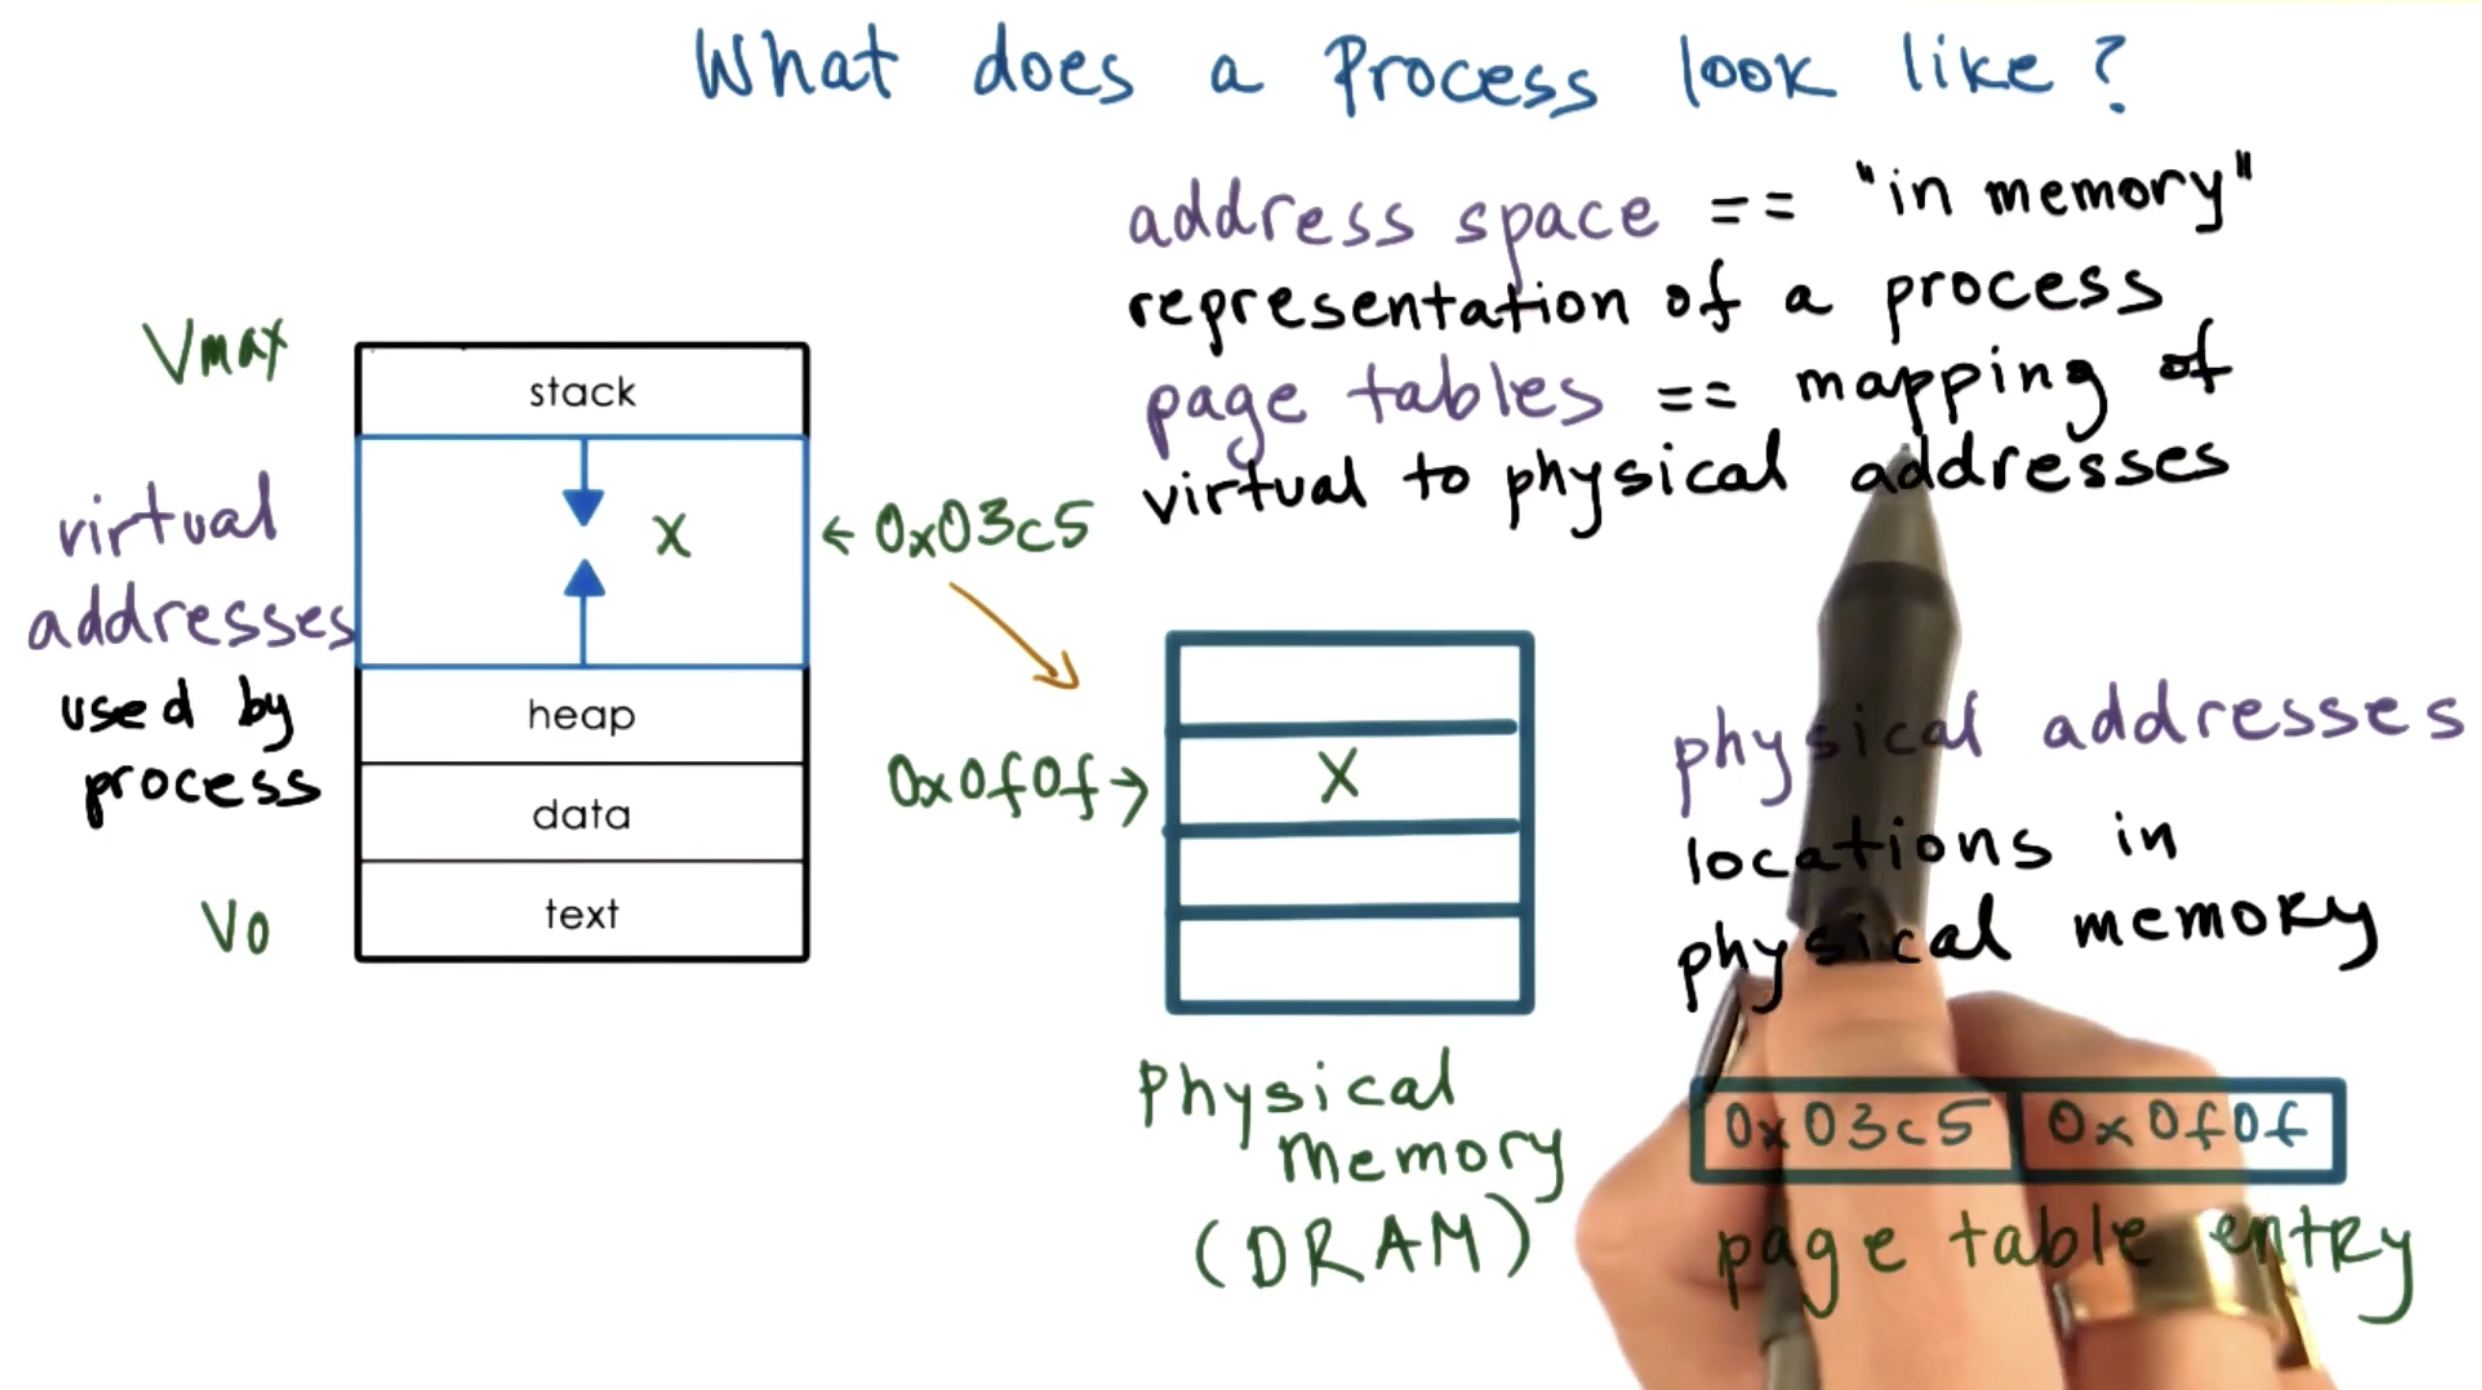 What does a Process look like?
address space == "in memory"
representation of a process
page tables == mapping of
virtual to physical addresses
Vmax
virtual
addresses
used by
process
V0
stack
x
heap
data
text
← 0x03c5
0x0f0f →
X
Physical
Memory
(DRAM)
physical addresses
locations in
physical memory
0x03c5 0x0f0f
page table entry